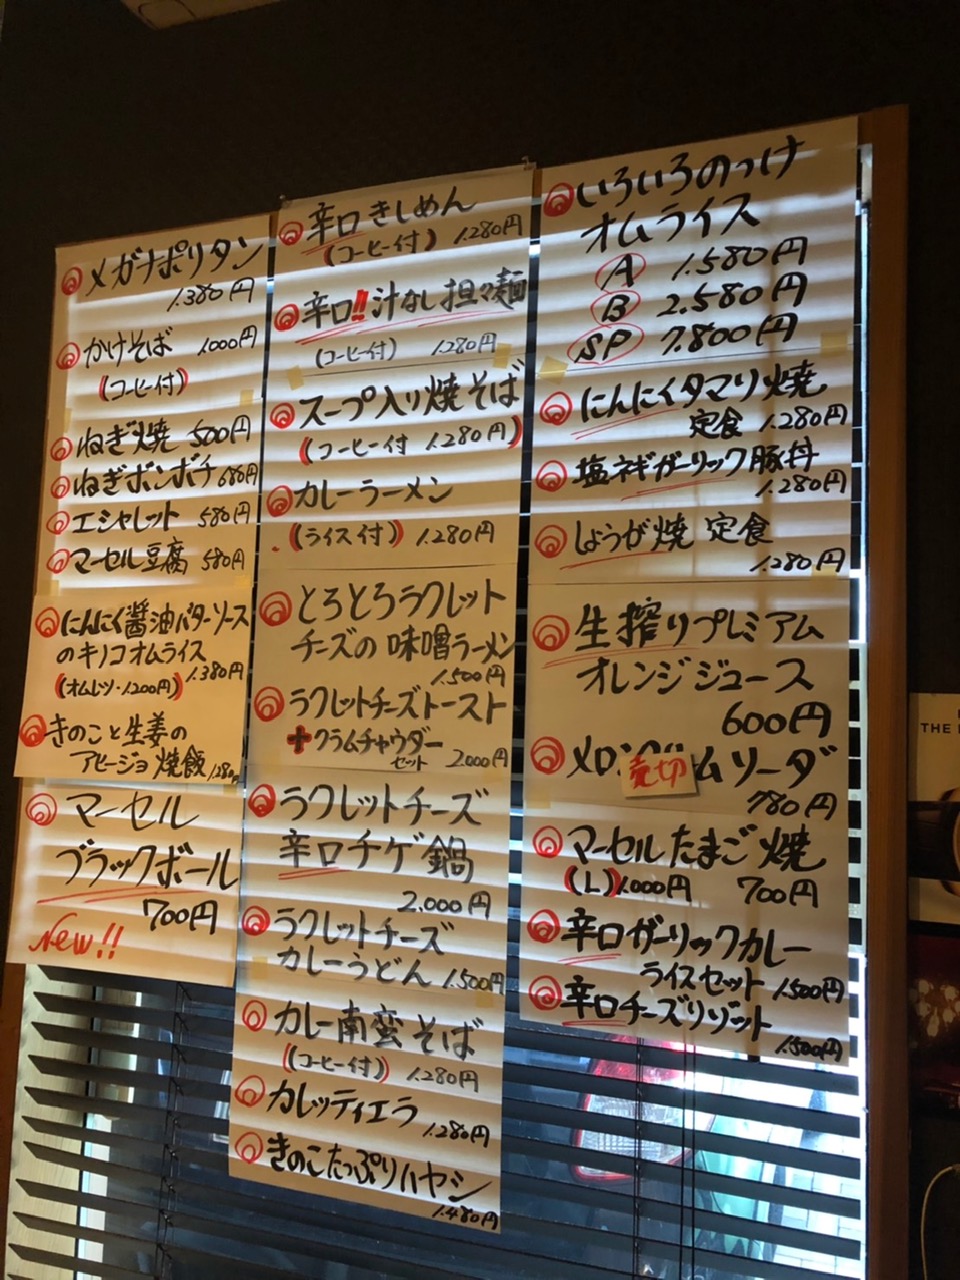 メガナポリタン
1.380円
かけそば 1.000円
(コーヒー付)
ねぎ焼 500円
ねぎボンボチ 680円
エシャレット 580円
マーセル豆腐 580円
にんにく醤油バターソース
のキノコオムライス
(オムレツ・1.200円) 1.380円
きのこと生姜の
アヒージョ焼飯 1.280円
マーセル
ブラックボール
700円
New!!
辛口きしめん
(コーヒー付) 1.280円
辛口!!汁なし担々麺
(コーヒー付) 1.280円
スープ入り焼そば
(コーヒー付 1.280円)
カレーラーメン
(ライス付) 1.280円
とろとろラクレット
チーズの味噌ラーメン
1.500円
ラクレットチーズトースト
+クラムチャウダー
セット 2.000円
ラクレットチーズ
辛口チゲ鍋
2.000円
ラクレットチーズ
カレーうどん 1.500円
カレー南蛮そば
(コーヒー付) 1.280円
カレッティエラ
1.280円
きのこたっぷりハヤシ
1.480円
いろいろのっけ
オムライス
A 1.580円
B 2.580円
SP 7.800円
にんにくタマリ焼
定食 1.280円
塩ネギガーリック豚丼
1.280円
しょうが焼定食
1.280円
生搾りプレミアム
オレンジジュース
600円
メロン 売切 ムソーダ
780円
マーセルたまご焼
(L)1.000円 700円
辛口ガーリックカレー
ライスセット 1.500円
辛口チーズリゾット
1.500円
THE